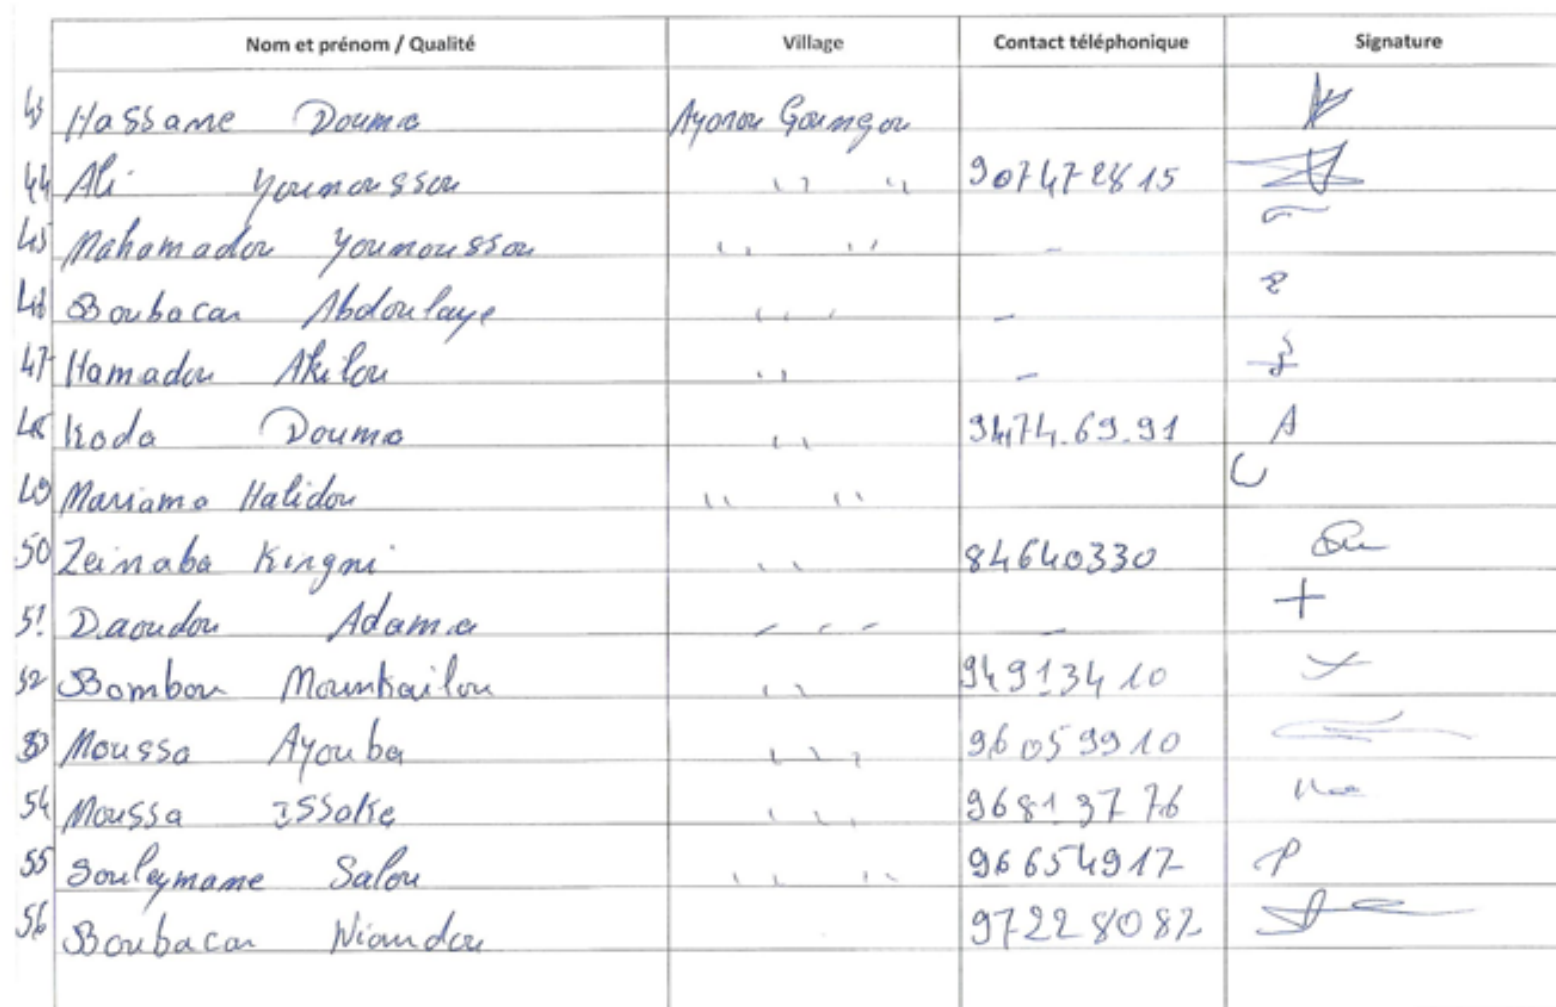 Nom et prénom / Qualité Village Contact téléphonique Signature
43 Hassane Douma Ayorou Goungou
44 Ali Younoussou " " 907472815
45 Mahamadou Younoussou " " -
46 Boubacar Abdoulaye " -
47 Hamadou Akilou " -
48 Koda Douma " 94,74.69.91
49 Mariama Halidou " "
50 Zeinaba Kingni " 84640330
51. Daoudou Adama " -
52 Bombou Mounkailou " 94913410
53 Moussa Ayouba " 96059910
54 Moussa Issake " 96813776
55 Souleymane Salou " " 96654917
56 Boubacar Niandou 97228082